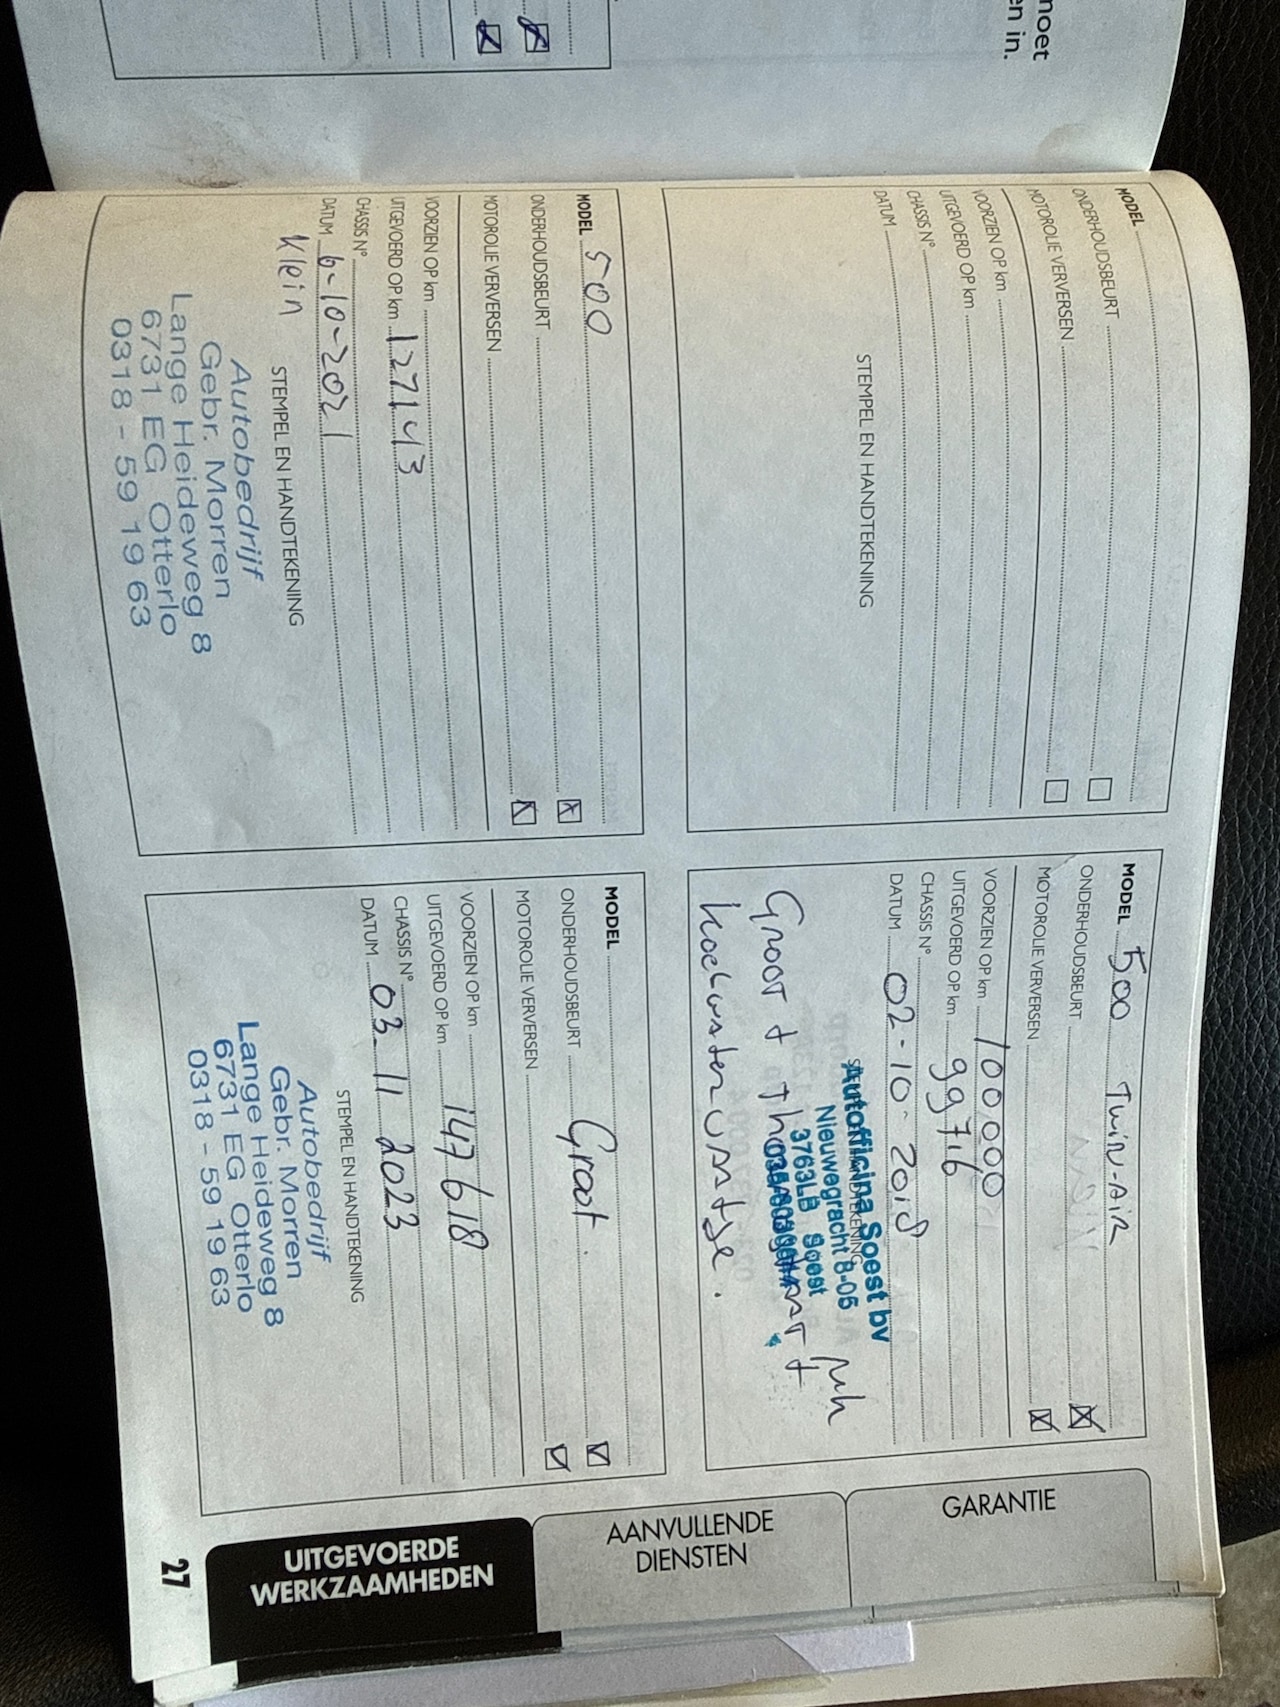 noet
en in.
MODEL
ONDERHOUDSBEURT
MOTOROLIE VERVERSEN
VOORZIEN OP km
UITGEVOERD OP km
CHASSIS N°
DATUM
STEMPEL EN HANDTEKENING
MODEL 500 TWIN-AIR
ONDERHOUDSBEURT
MOTOROLIE VERVERSEN
VOORZIEN OP km 100.000
UITGEVOERD OP km 99716
CHASSIS N°
DATUM 02-10-2018
STEMPEL EN HANDTEKENING
Autofficina Soest bv
Nieuwegracht 8-05
3763LB Soest
Groot +
MODEL 500
ONDERHOUDSBEURT
MOTOROLIE VERVERSEN
VOORZIEN OP km
UITGEVOERD OP km 127143
CHASSIS N°
DATUM 6-10-2021
Klein
STEMPEL EN HANDTEKENING
Autobedrijf
Gebr. Morren
Lange Heideweg 8
6731 EG Otterlo
0318 - 59 19 63
MODEL
ONDERHOUDSBEURT Groot.
MOTOROLIE VERVERSEN
VOORZIEN OP km
UITGEVOERD OP km 147618
CHASSIS N°
DATUM 03-11 2023
STEMPEL EN HANDTEKENING
Autobedrijf
Gebr. Morren
Lange Heideweg 8
6731 EG Otterlo
0318 - 59 19 63
GARANTIE
AANVULLENDE
DIENSTEN
UITGEVOERDE
WERKZAAMHEDEN
27